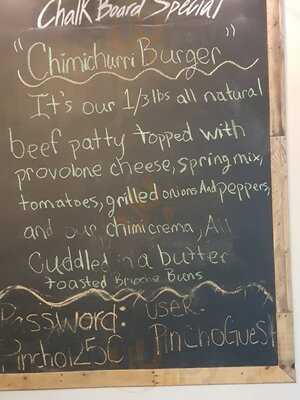 Chalk Board Special
"Chimichurri Burger"
It's our 1/3lbs all natural
beef patty topped with
provolone cheese, spring mix,
tomatoes, grilled onions And peppers,
and our chimi crema, All
Cuddled in a butter
toasted Brioche Buns
Password: user:
Pincho125C PinchoGuest